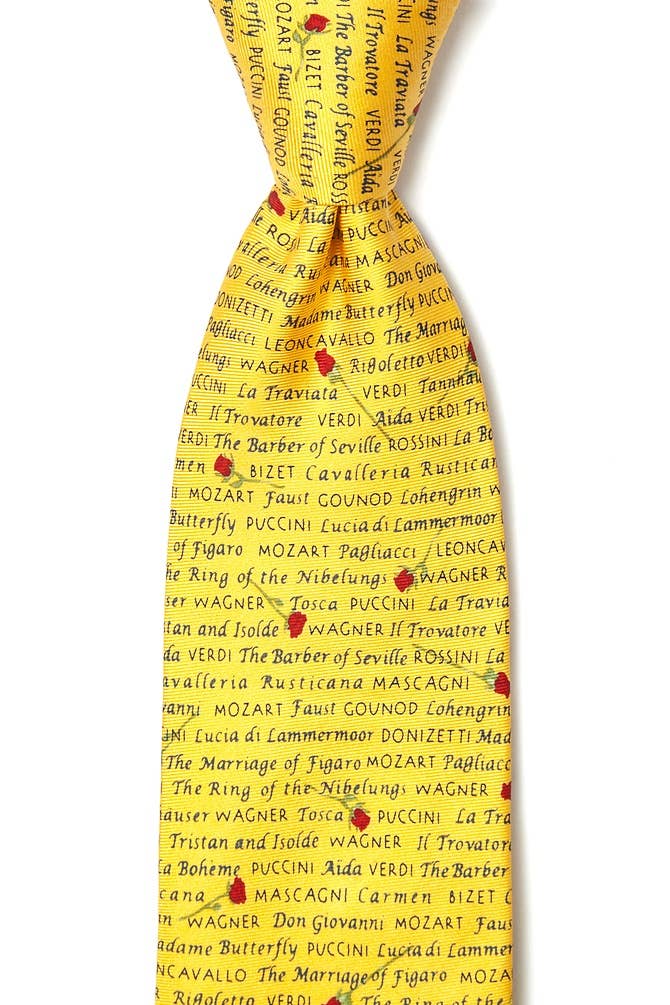 MOZART Faust GOUNOD
BIZET Cavalleria
The Barber of Seville ROSS
Il Trovatore VERDI Aida
La Traviata VERDI
WAGNER
Butterfly PUCCINI
Figaro
Aida
ROS La PUCCI
MASCAGNI
Lohengrin WAGNER Don Giov
DONIZETTI Madame Butterfly PUCC
Pagliacci LEONCAVALLO The Marriag
elungs WAGNER Rigoletto VERDI
UCCINI La Traviata VERDI Tannhäu
ER Il Trovatore VERDI Aida VERDI Tri
ERDI The Barber of Seville ROSSINI La Bo
men BIZET Cavalleria Rustican
MOZART Faust GOUNOD Lohengrin W
Butterfly PUCCINI Lucia di Lammermoor
of Figaro MOZART Pagliacci LEONCAV
he Ring of the Nibelungs WAGNER R
ser WAGNER Tosca PUCCINI La Travia
tan and Isolde WAGNER Il Trovatore VE
da VERDI The Barber of Seville ROSSINI La
avalleria Rusticana MASCAGNI
anni MOZART Faust GOUNOD Lohengrin
INI Lucia di Lammermoor DONIZETTI Mad
The Marriage of Figaro MOZART Pagliacc
The Ring of the Nibelungs WAGNER
äuser WAGNER Tosca PUCCINI La Tra
Tristan and Isolde WAGNER Il Trovator
a Bohème PUCCINI Aïda VERDI The Barber
cana MASCAGNI Carmen BIZET C
in WAGNER Don Giovanni MOZART Faus
adame Butterfly PUCCINI Lucia di Lammer
NCAVALLO The Marriage of Figaro MOZA
Rigoletto VERDI The Ring of the